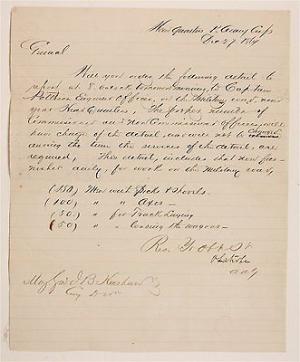 Head Quarters 1st Army Corps
Dec 27 1864
General
Will you order the following detail to
report at 8 oclock tomorrow morning, to Captain
Engineer Officer, on the Military road, near
your Head Quarters, The proper number of
Commissioned and Non Commissioned Officers, will
have charge of the detail, and will not be
during the time the services of the detail, are
required, This detail, includes that now fur-
nished daily, for work on the Military road,
(150) Men with Picks & Shovels.
(100) " " Axes -
(50) " for Track Laying
(50) " " Loading the wagons -
Res Yr Obt St
A A G
Maj Genl J B Kershaw
Comg Divn